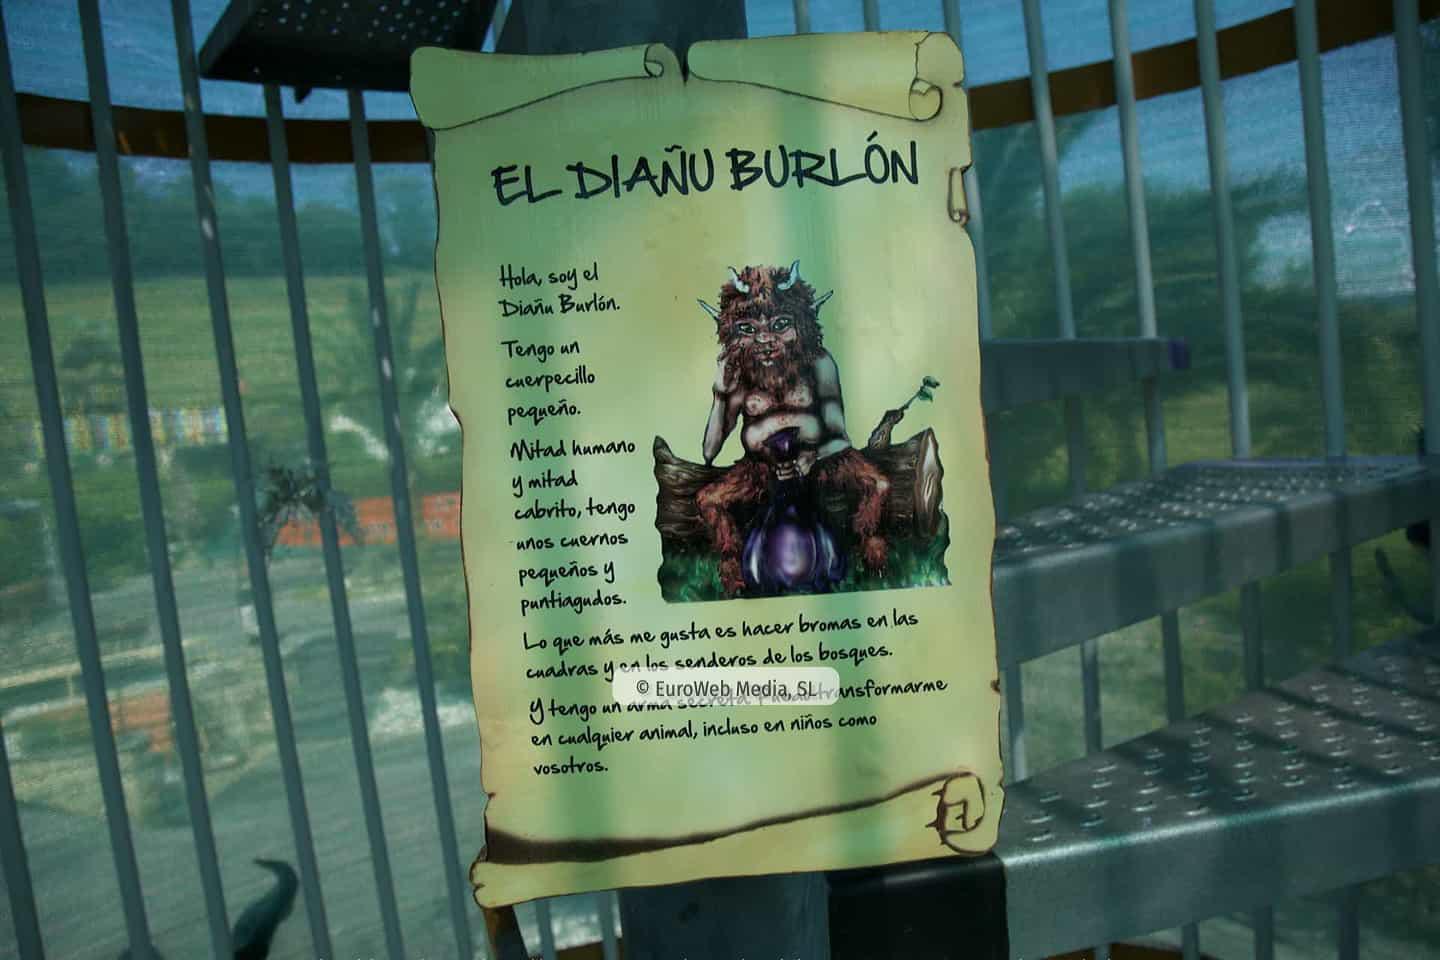 EL DIAÑU BURLÓN
Hola, soy el
Diañu Burlón.
Tengo un
cuerpecillo
pequeño.
Mitad humano
y mitad
cabrito, tengo
unos cuernos
pequeños y
puntiagudos.
Lo que más me gusta es hacer bromas en las
cuadras y en los senderos de los bosques.
© EuroWeb Media, SL
Y tengo un arma secreta. Puedo transformarme
en cualquier animal, incluso en niños como
vosotros.